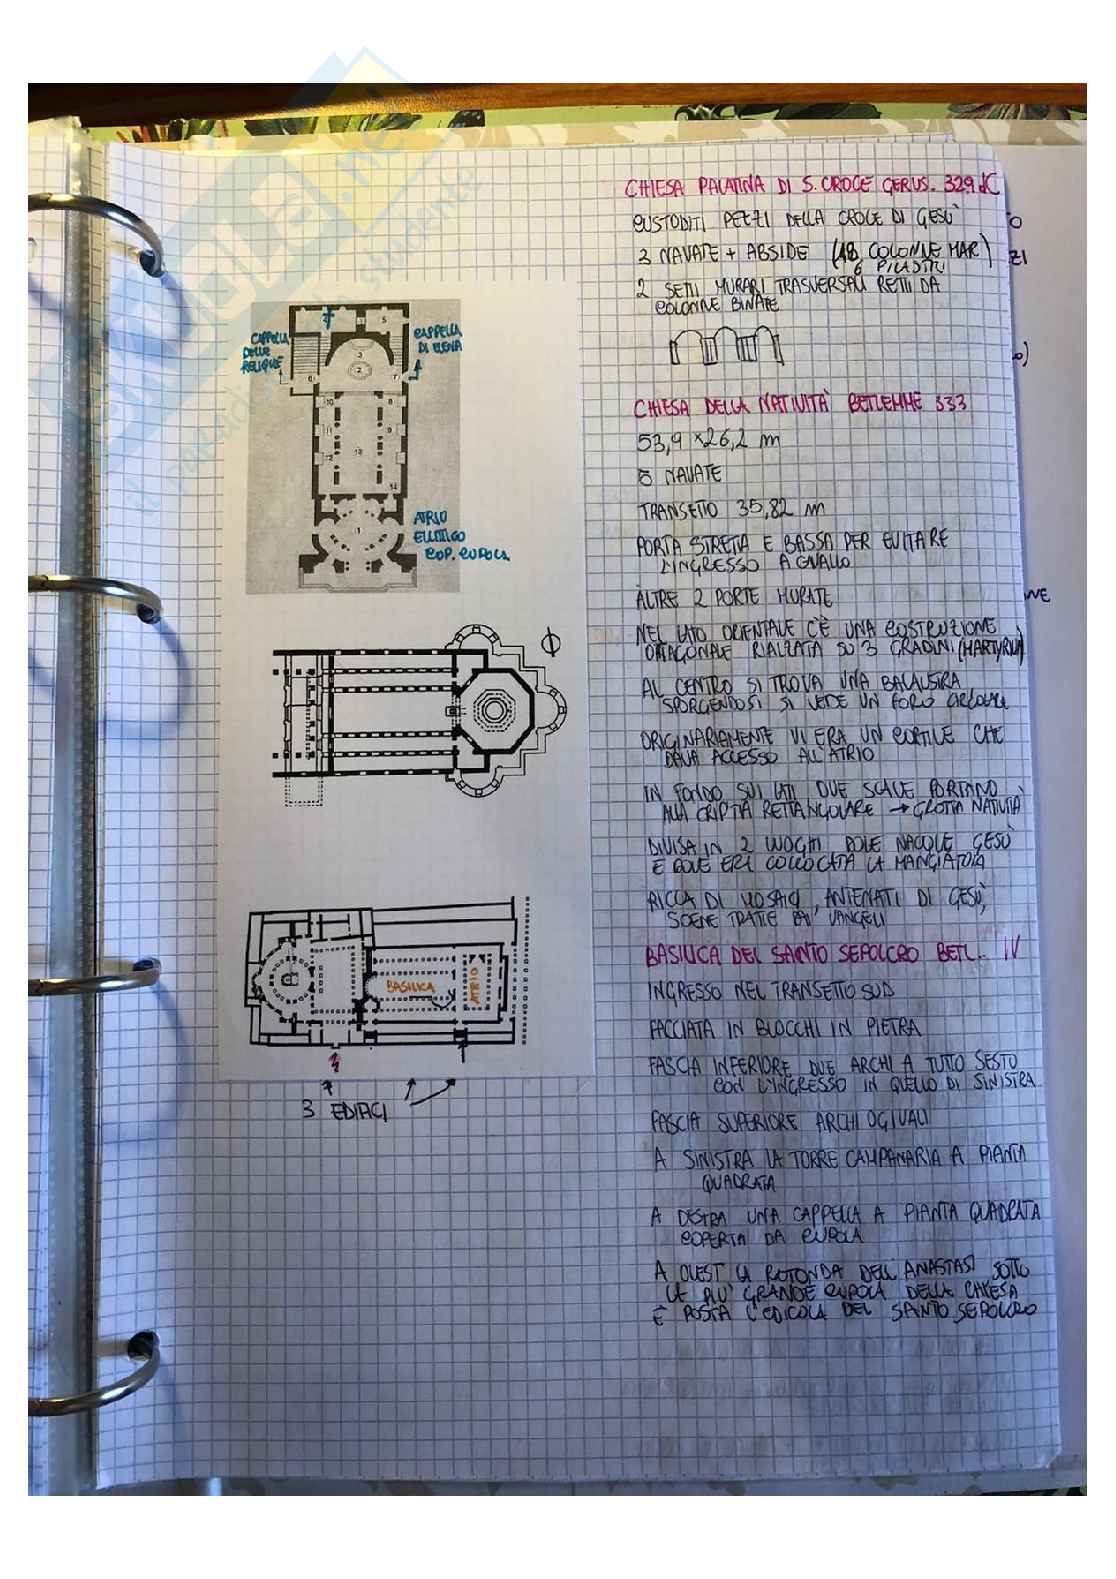 CHIESA PALATINA DI S. CROCE GERUS. 329 dC
CUSTODITI PEZZI DELLA CROCE DI GESÙ
3 NAVATE + ABSIDE (18 COLONNE MAR)
6 PILASTRI
2 SETTI MURARI TRASVERSALI RETTI DA
COLONNE BINATE
CHIESA DELLA NATIVITÀ BETLEMME 333
53,9 × 26,2 m
5 NAVATE
TRANSETTO 35,82 m
PORTA STRETTA E BASSA PER EVITARE
L'INGRESSO A CAVALLO
ALTRE 2 PORTE MURATE
NEL LATO ORIENTALE C'È UNA COSTRUZIONE
OTTAGONALE RIALZATA SU 3 GRADINI (MARTYRIUM)
AL CENTRO SI TROVA UNA BALAUSTRA
SPORGENDOSI SI VEDE UN FORO CIRCOLARE
ORIGINARIAMENTE VI ERA UN CORTILE CHE
DAVA ACCESSO ALL'ATRIO
IN FONDO SUI LATI DUE SCALE PORTANO
ALLA CRIPTA RETTANGOLARE → GROTTA NATIVITÀ
DIVISA IN 2 LUOGHI DOVE NACQUE GESÙ
E DOVE ERA COLLOCATA LA MANGIATOIA
RICCA DI MOSAICI, ANTENATI DI GESÙ,
SCENE TRATTE DAI VANGELI
BASILICA DEL SANTO SEPOLCRO BETL. IV
INGRESSO NEL TRANSETTO SUD
FACCIATA IN BLOCCHI IN PIETRA
FASCIA INFERIORE DUE ARCHI A TUTTO SESTO
CON L'INGRESSO IN QUELLO DI SINISTRA
FASCIA SUPERIORE ARCHI OGIVALI
A SINISTRA LA TORRE CAMPANARIA A PIANTA
QUADRATA
A DESTRA UNA CAPPELLA A PIANTA QUADRATA
COPERTA DA CUPOLA
A OVEST LA ROTONDA DELL'ANASTASI SOTTO
LA PIÙ GRANDE CUPOLA DELLA CHIESA
È POSTA L'EDICOLA DEL SANTO SEPOLCRO
CAPPELLA
DELLE
RELIQUIE
CAPPELLA
DI ELENA
ATRIO
ELLITTICO
COP. CUPOLA
BASILICA
ATRIO
3 EDIFICI